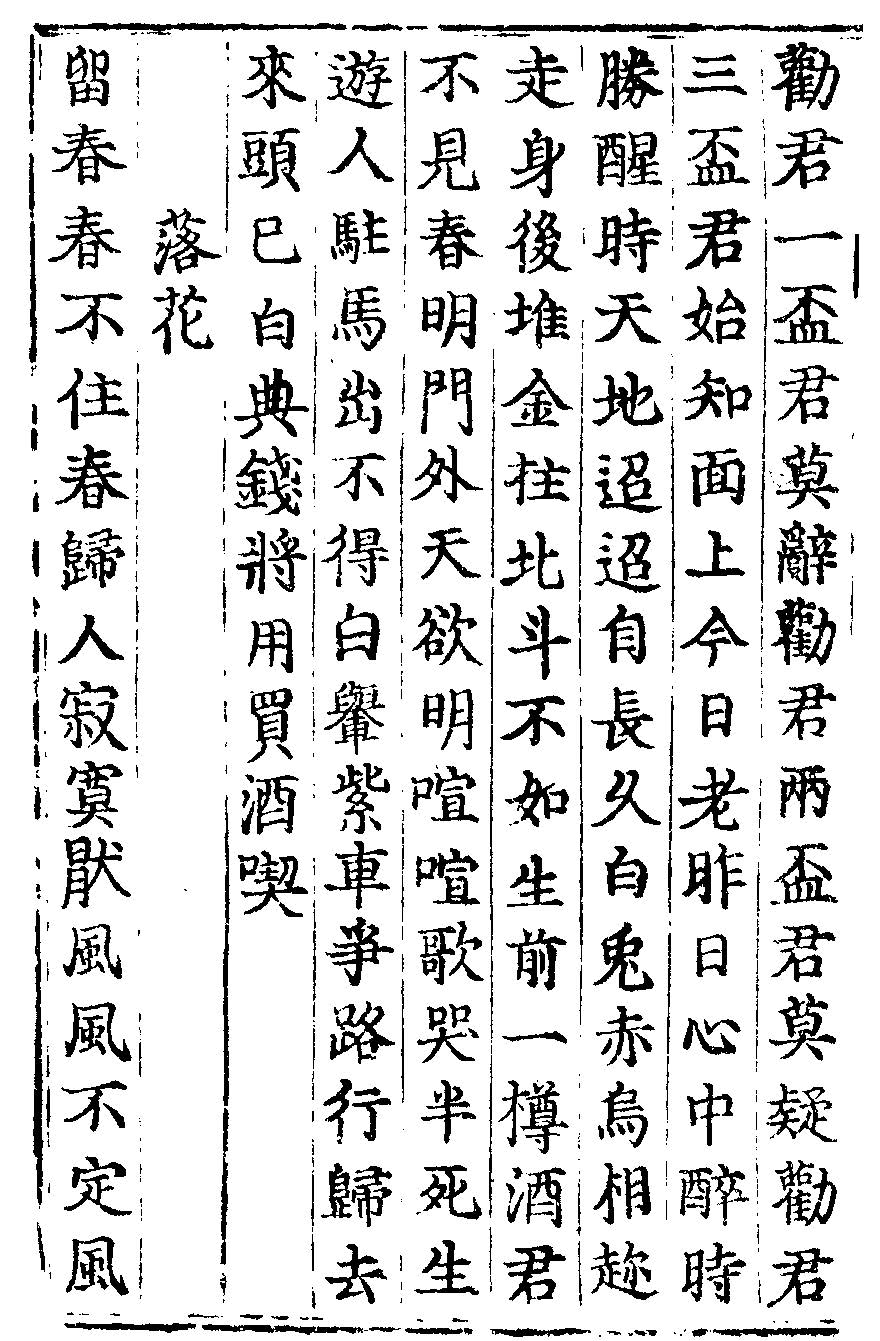 勸君一盃君莫辭勸君兩盃君莫疑勸君
三盃君始知面上今日老昨日心中醉時
勝醒時天地迢迢自長久白兎赤烏相趂
走身後堆金拄北斗不如生前一樽酒君
不見春明門外天欲明喧喧歌哭半死生
遊人駐馬出不得白轝紫車爭路行歸去
來頭已白典錢將用買酒喫
落花
留春春不住春歸人寂寞猒風風不定風